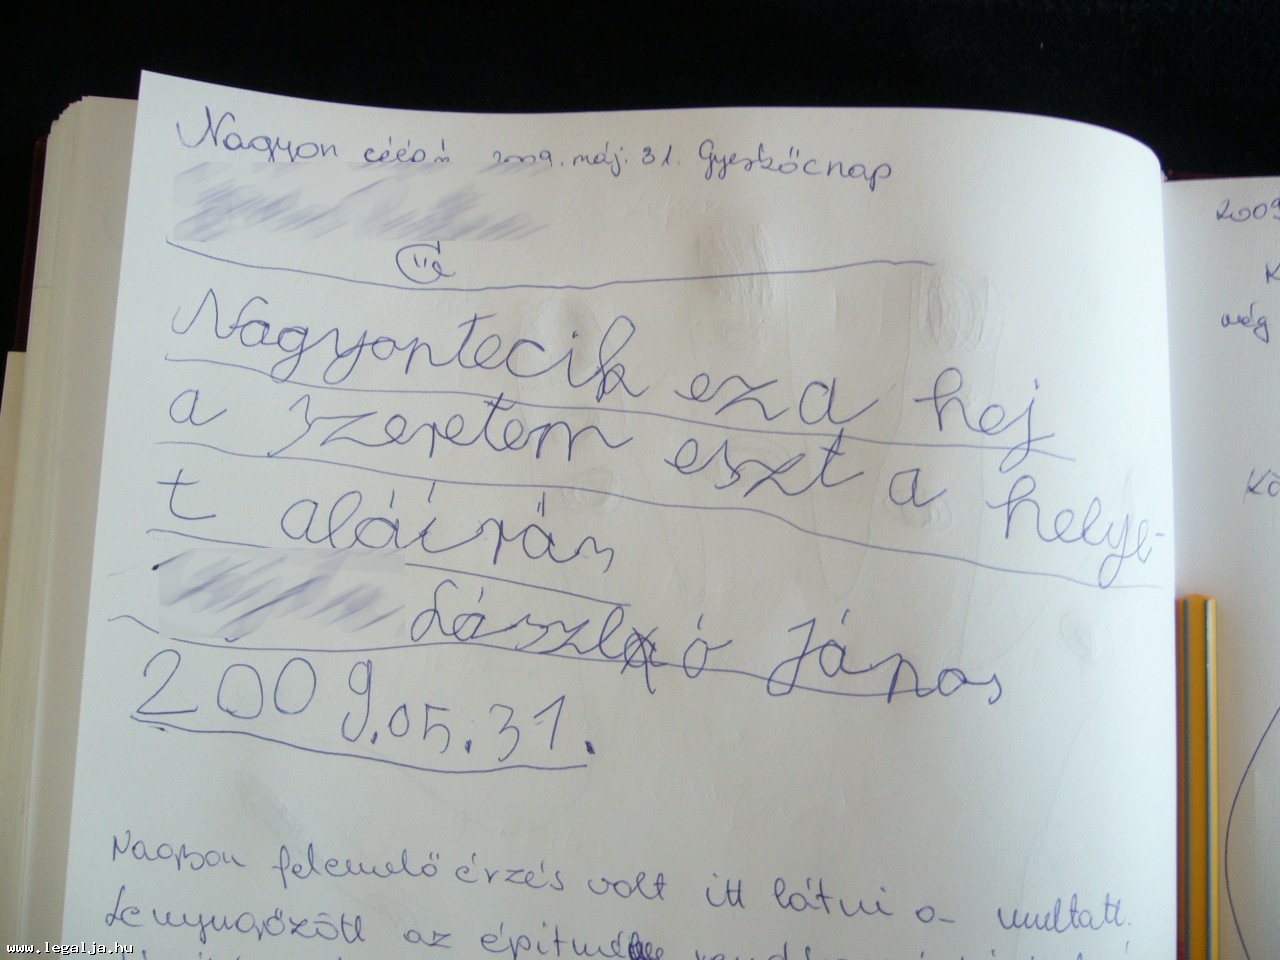 Nagyon 2009. máj. 31. Gyerkőcnap
Nagyontecik ez a hej
a szeretem eszt a helye-
t aláírás
László János
2009.05.31.
Nagyon felemelő érzés volt itt látni a multatt.
Lenyugözött az
2009
még
www.legalja.hu